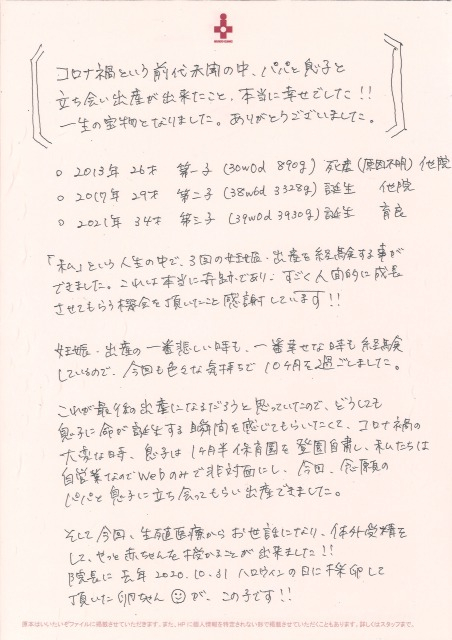 コロナ禍という前代未聞の中、パパと息子と
立ち会い出産が出来たこと、本当に幸せでした!!
一生の宝物となりました。ありがとうございました。
○ 2013年 26才 第一子 (30w0d 890g) 死産(原因不明) 他院
○ 2017年 29才 第二子 (38w6d 3328g) 誕生 他院
○ 2021年 34才 第三子 (39w0d 3930g) 誕生 育良
「私」という人生の中で、3回の妊娠・出産を経験する事が
できました。これは本当に奇跡であり、すごく人間的に成長
させてもらう機会を頂いたこと感謝しています!!
妊娠・出産の一番悲しい時も、一番幸せな時も経験
しているので、今回も色々な気持ちで10ヶ月を過ごしました。
これが最後の出産になるだろうと思っていたので、どうしても
息子に命が誕生する瞬間を感じてもらいたくて、コロナ禍の
大変な時、息子は1ヶ月半保育園を登園自粛し、私たちは
自営業なのでWebのみで非対面にし、今回、念願の
パパと息子に立ち会ってもらい出産できました。
そして今回、生殖医療からお世話になり、体外受精を
して、やっと赤ちゃんを授かることが出来ました!!
院長に去年2020.10.31 ハロウィンの日に採卵して
頂いた卵ちゃん☺が、この子です!!
原本はいいたいぞファイルに掲載させていただきます。また、HPに個人情報を特定されない形で掲載させていただくこともあります。詳しくはスタッフまで。